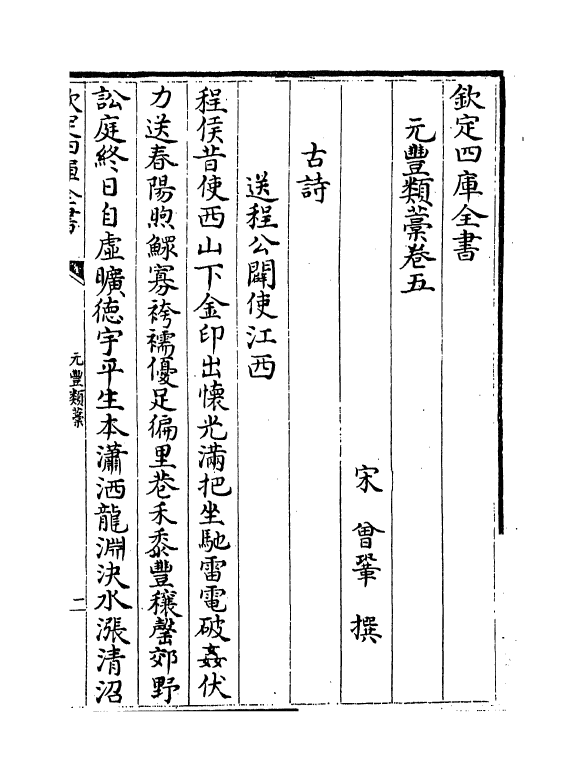 欽定四庫全書
元豐類藁卷五
宋 曾鞏 撰
古詩
送程公闢使江西
程侯昔使西山下金印出懷光滿把坐馳雷電破姦伏
力送春陽煦鰥寡袴襦優足徧里巷禾黍豐穰罄郊野
訟庭終日自虛曠德宇平生本瀟洒龍淵決水漲清沼
欽定四庫全書
元豐類藁